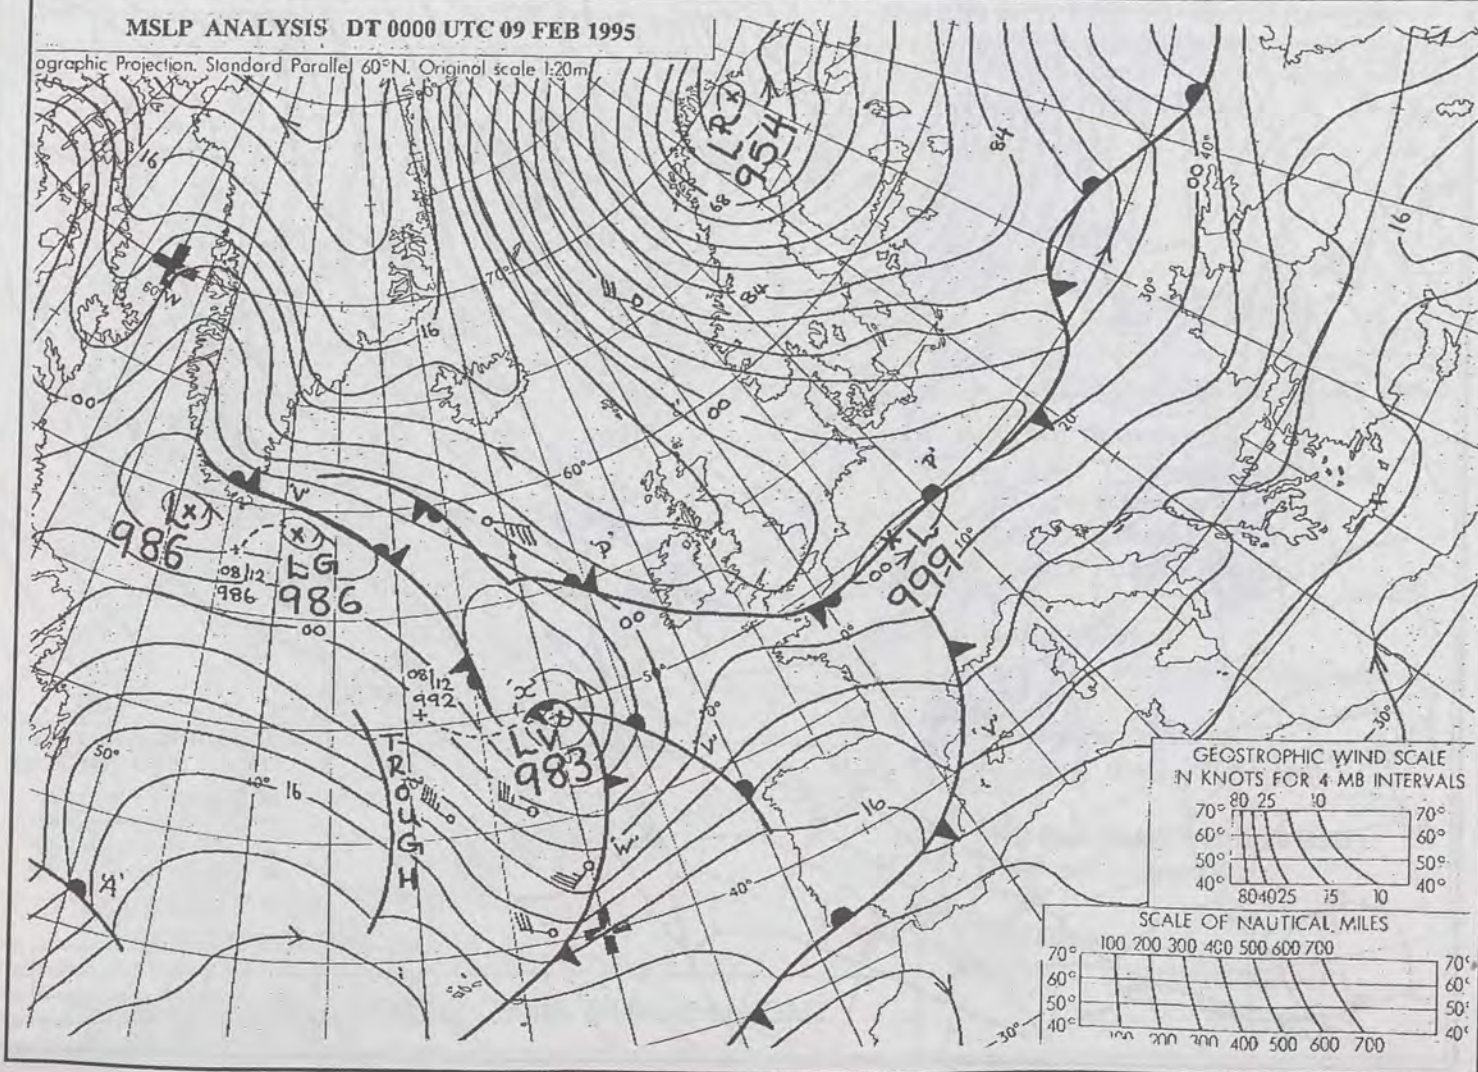 MSLP ANALYSIS DT 0000 UTC 09 FEB 1995
ographic Projection. Standard Parallel 60°N. Original scale 1:20m
80°
LR
954
68
84
40°
00
16
16
60°W
70°
84
30°
16
16
00
00
20°
60°
'A'
L
986
'V'
08/12
986
LG
986
'P'
10°
00
L
999
00
00
0°
50°
08/12
992
'X'
LV
983
'V'
'V'
30°
50°
40°
16
TROUGH
16
'W'
40°
'A'
30°
GEOSTROPHIC WIND SCALE
IN KNOTS FOR 4 MB INTERVALS
80 25 10
70° 70°
60° 60°
50° 50°
40° 40°
80 40 25 15 10
SCALE OF NAUTICAL MILES
100 200 300 400 500 600 700
70° 70°
60° 60°
50° 50°
40° 40°
100 200 300 400 500 600 700